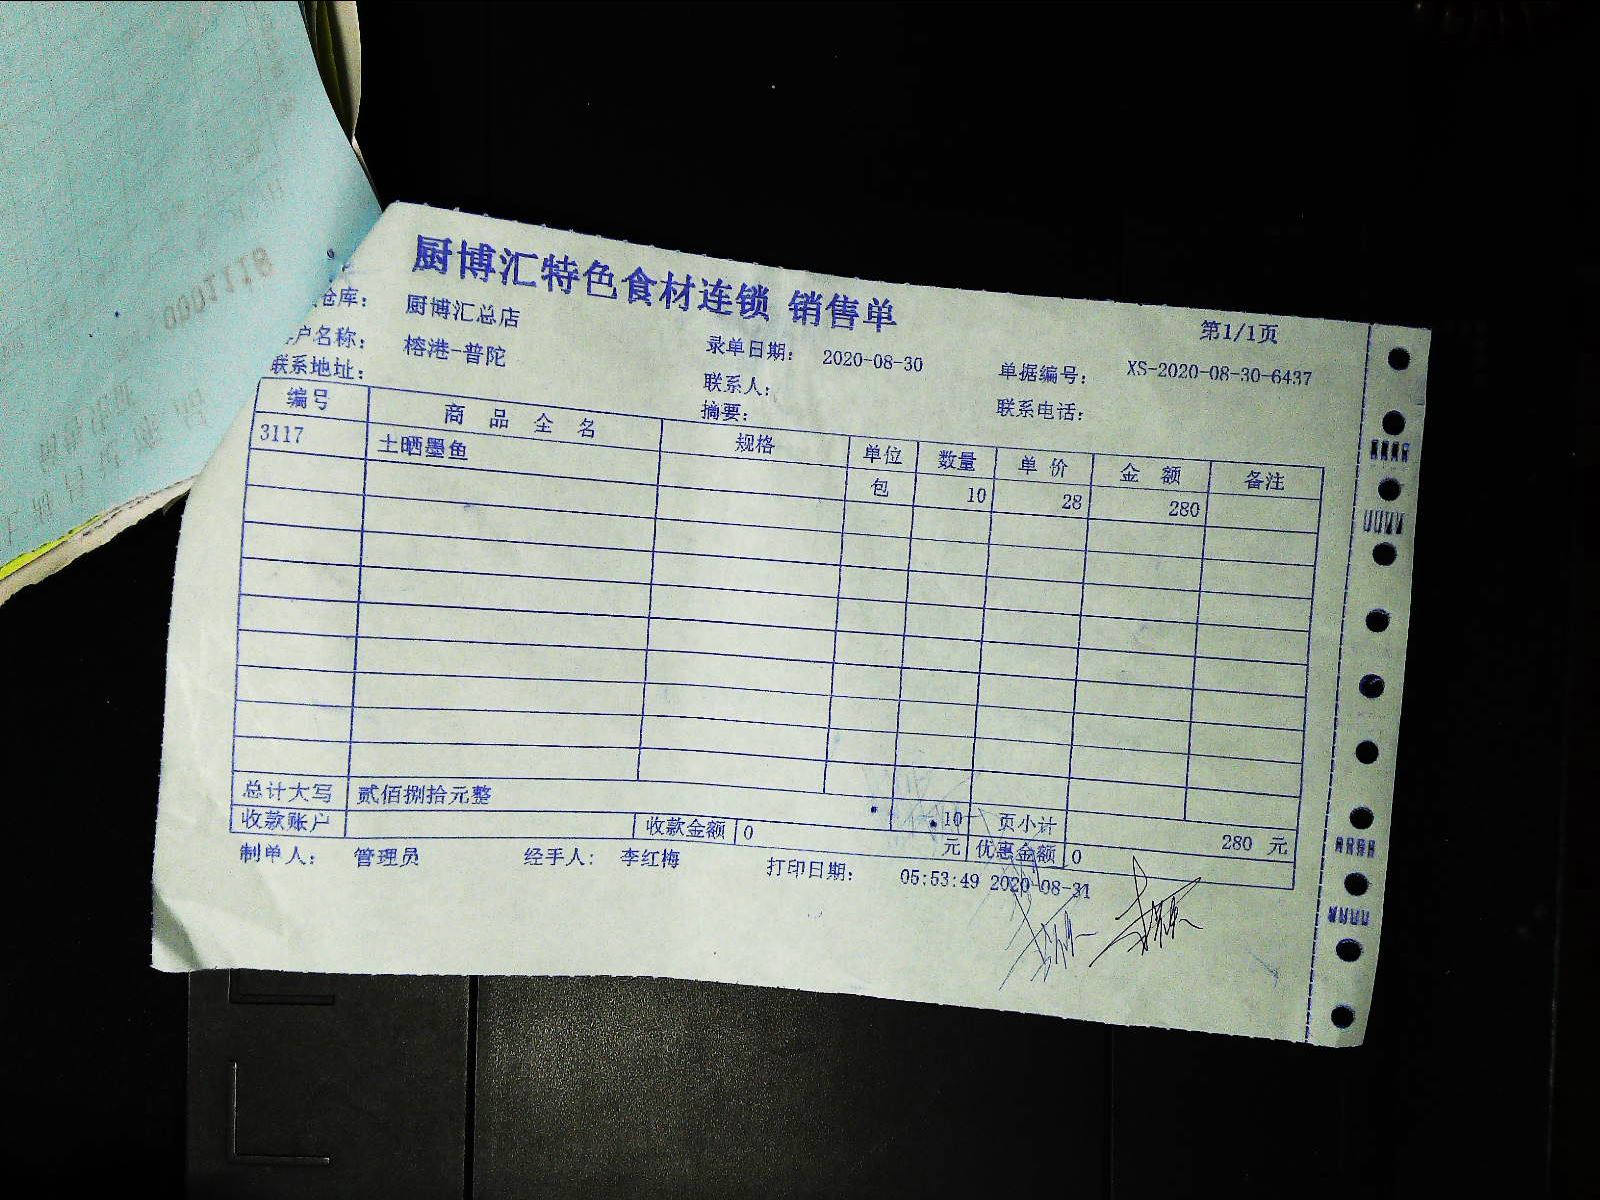 厨博汇特色食材连锁 销售单
第1/1页
仓库： 厨博汇总店
户名称： 榕港-普陀 录单日期： 2020-08-30 单据编号： XS-2020-08-30-6437
联系地址： 联系人： 联系电话：
摘要：
编号 商品全名 规格 单位 数量 单价 金额 备注
3117 土晒墨鱼 包 10 28 280
总计大写 贰佰捌拾元整 10 页小计 280 元
收款账户 收款金额 0 元 优惠金额 0
制单人： 管理员 经手人： 李红梅 打印日期： 05:53:49 2020-08-31